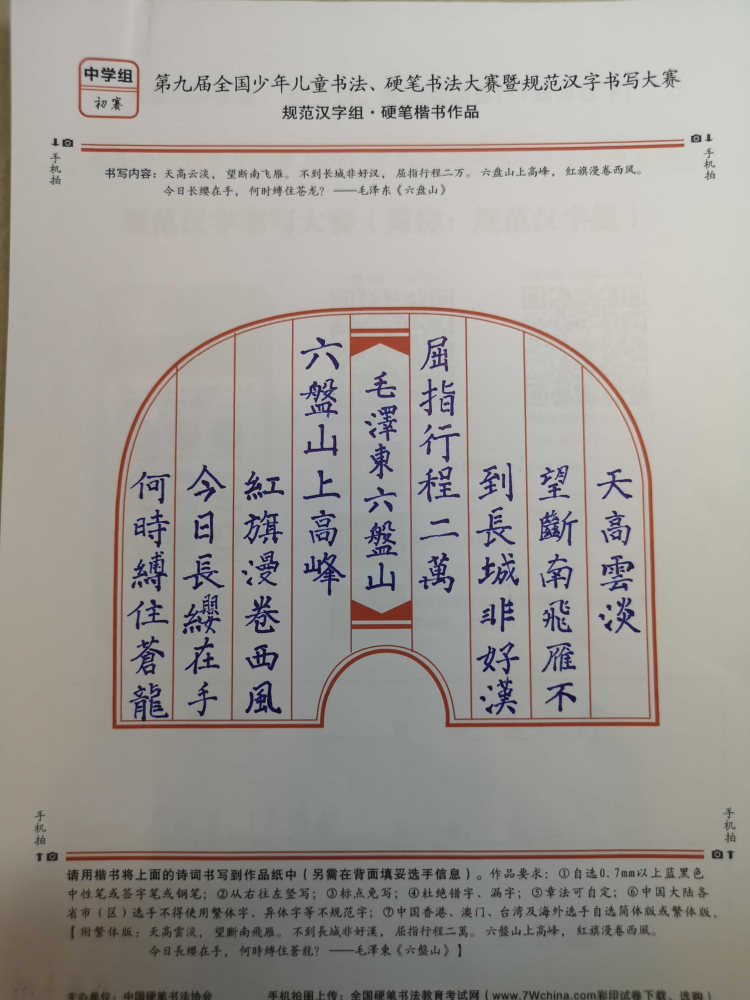 中学组
初赛
第九届全国少年儿童书法、硬笔书法大赛暨规范汉字书写大赛
规范汉字组·硬笔楷书作品
手机拍
手机拍
书写内容：天高云淡，望断南飞雁。不到长城非好汉，屈指行程二万。六盘山上高峰，红旗漫卷西风。
今日长缨在手，何时缚住苍龙？——毛泽东《六盘山》
天高雲淡
望斷南飛雁不
到長城非好漢
屈指行程二萬
毛澤東六盤山
六盤山上高峰
紅旗漫卷西風
今日長纓在手
何時縛住蒼龍
手机拍
手机拍
请用楷书将上面的诗词书写到作品纸中（另需在背面填妥选手信息）。作品要求：①自选0.7mm以上蓝黑色
中性笔或签字笔或钢笔；②从右往左竖写；③标点免写；④杜绝错字、漏字；⑤章法可自定；⑥中国大陆各
省市（区）选手不得使用繁体字、异体字等不规范字；⑦中国香港、澳门、台湾及海外选手自选简体版或繁体版。
【附繁体版：天高雲淡，望斷南飛雁。不到長城非好漢，屈指行程二萬。六盤山上高峰，紅旗漫卷西風。
今日長纓在手，何時縛住蒼龍？——毛澤東《六盤山》】
主办单位：中国硬笔书法协会
手机拍图上传：全国硬笔书法教育考试网（www.7Wchina.com彩印试卷下载、选购）